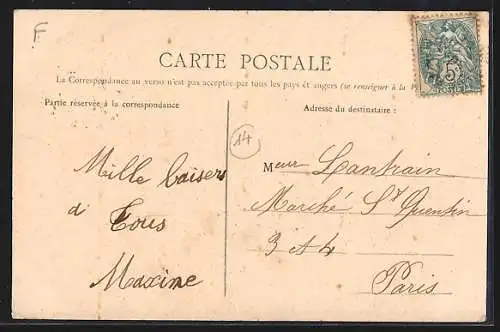 F
CARTE POSTALE
La Correspondance au verso n'est pas acceptée par tous les pays étrangers (se renseigner à la
Partie réservée à la correspondance
Adresse du destinataire :
14
5
Mille baisers
à Tous
Maxime
Meur Lantrain
Marché St Quentin
3 et 4
Paris